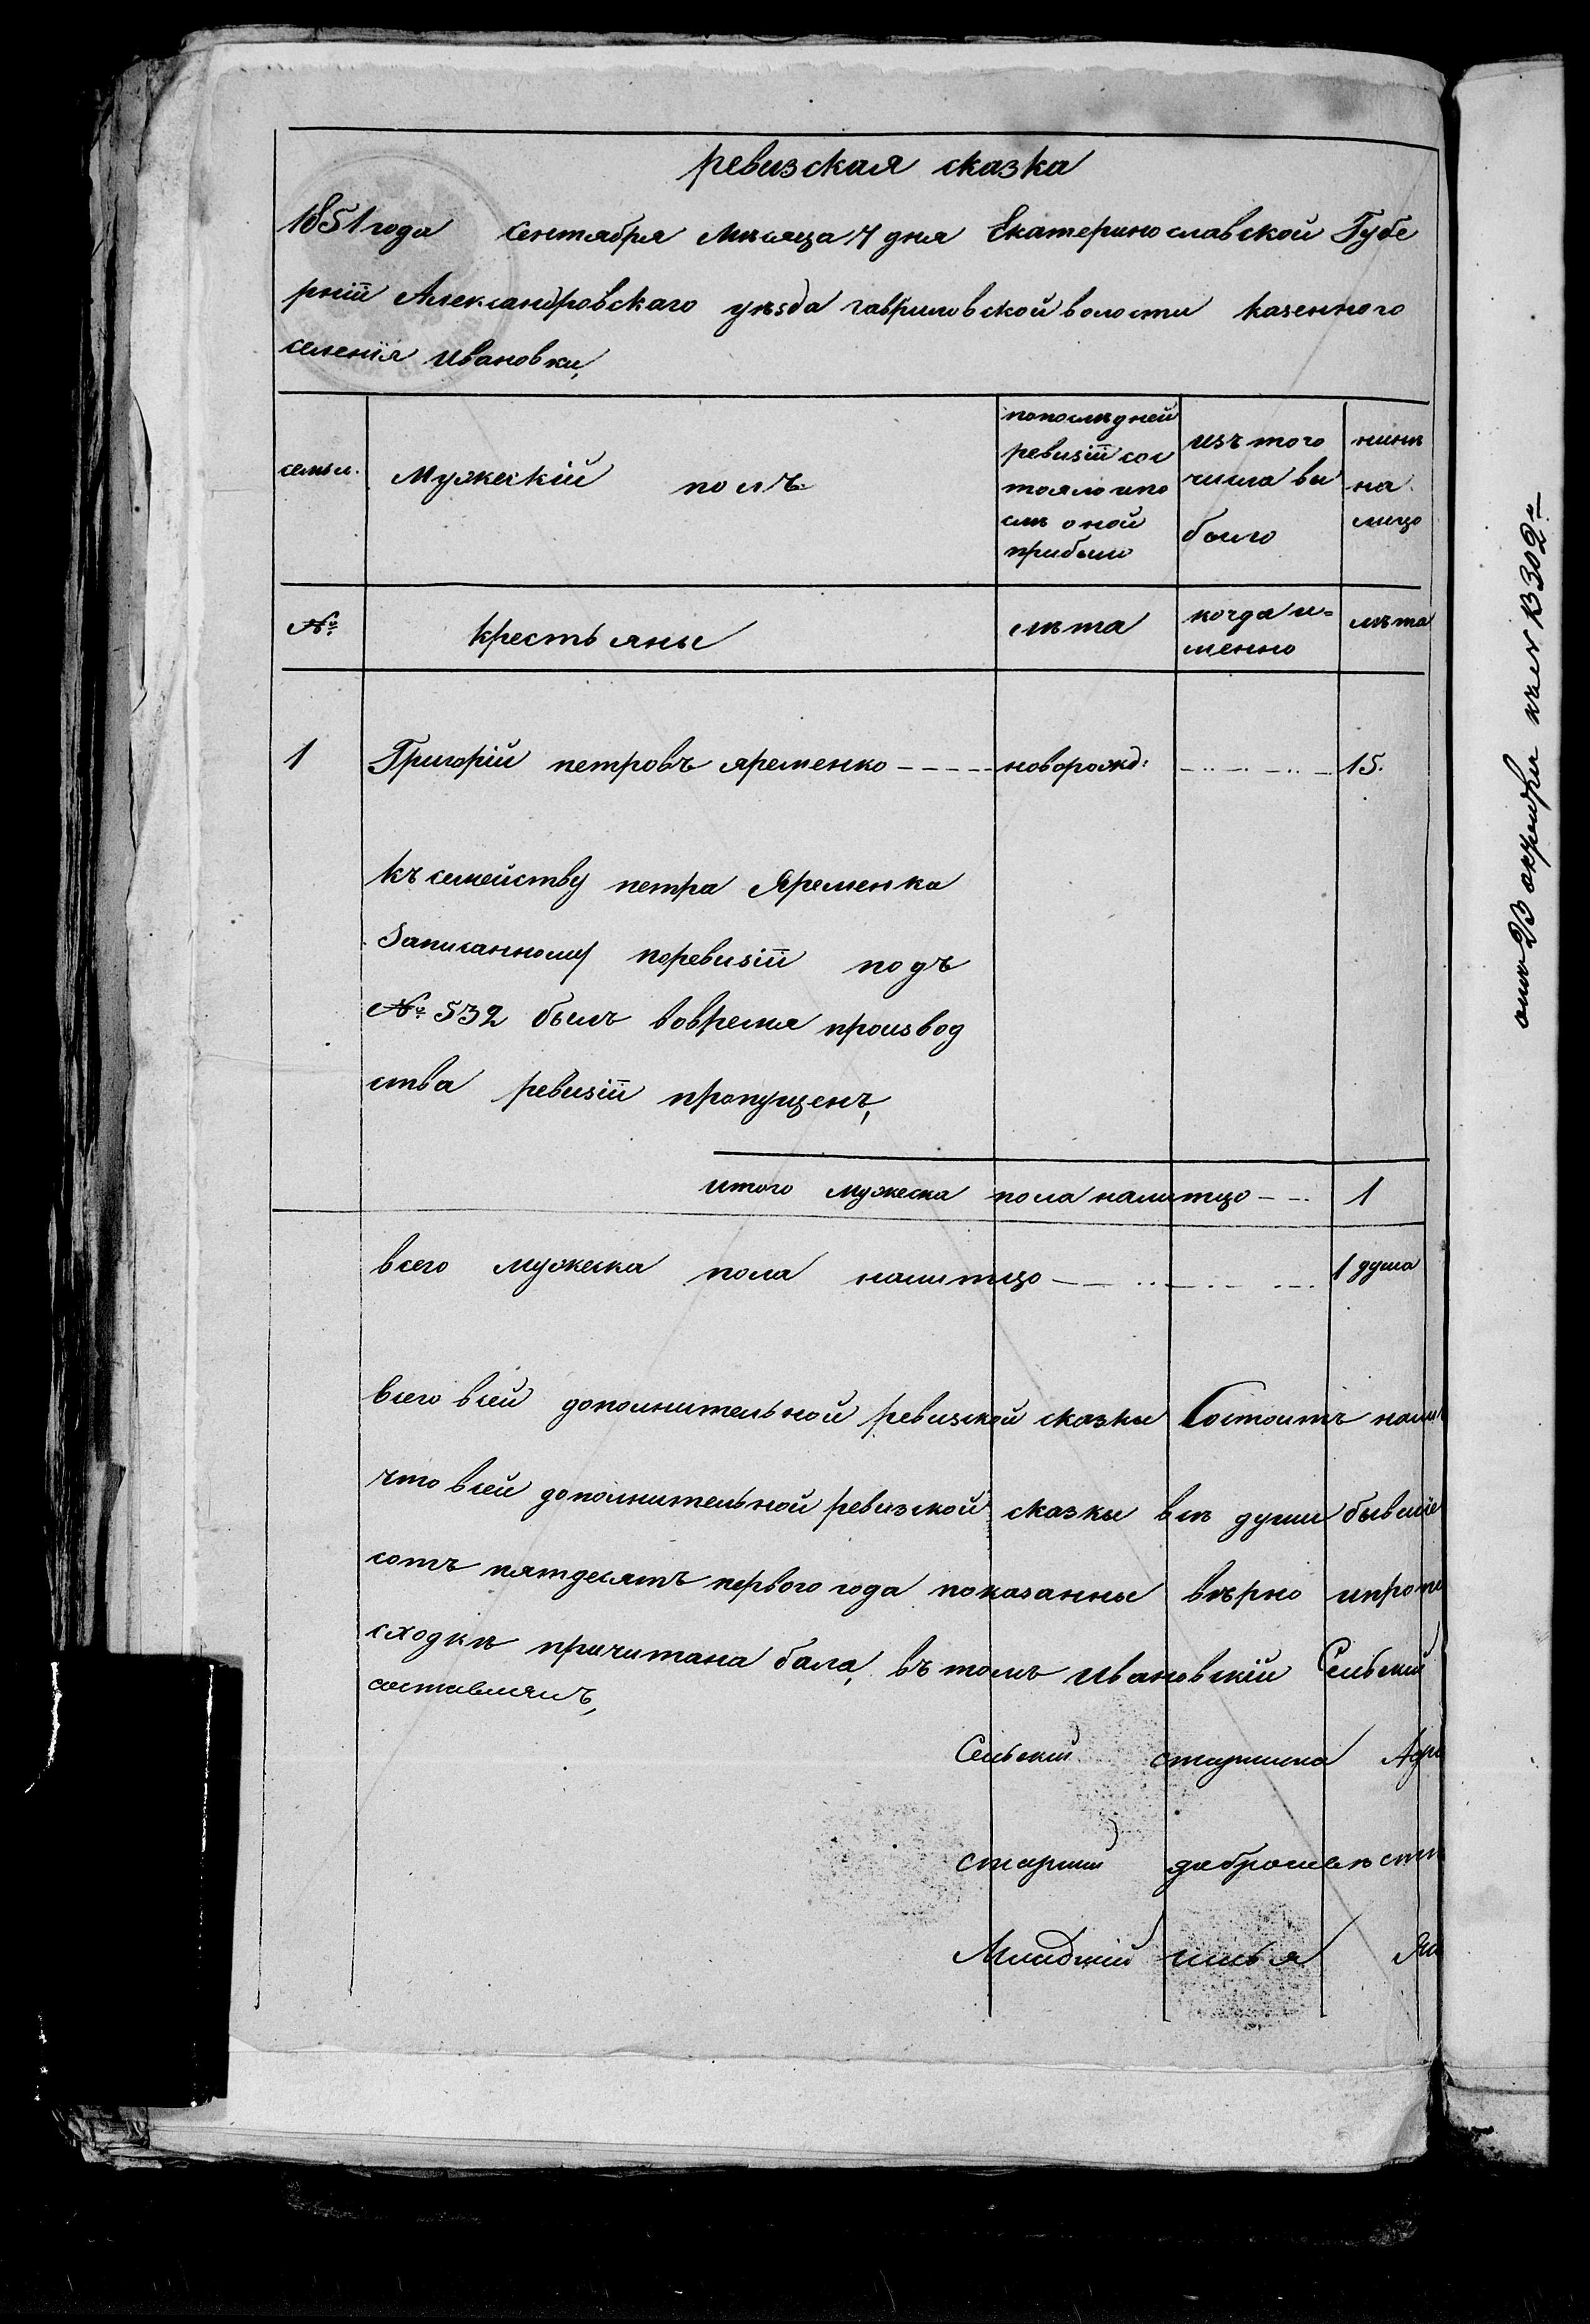 ревизская сказка
1851 года сентября мѣсяца 7 дня Екатеринославской Губе
рніи Александровскаго уѣзда гавриловской волости казенного
селенія ивановки,
семьи.
Мужескій полъ
попослѣдней
ревизіи сос
тояло ипо
слѣ оной
прибыло
изъ того
числа вы
было
нинѣ
на
лицо
№
крестьяны
лѣта
когда и-
менно
лѣта
1 Григорій петровъ яременко - - - - новорожд: 15.
къ семейству петра Яременка
записанному поревизіи подъ
№ 532 былъ вовремя производ
ства ревизіи пропущенъ,
итого мужеска пола налитцо - - 1
всего мужеска пола налитцо 1 душа
всего всей дополнительной ревизской сказки Состоитъ нали
что всей дополнительной ревизской сказкы всѣ души бывшіе
сотъ пятдесятъ первого года показанны вѣрно ипро
сходкѣ причитана бала, въ томъ ивановскій Сельский
составлялъ,
Сельский старшина
старший доброс
Младшій илья